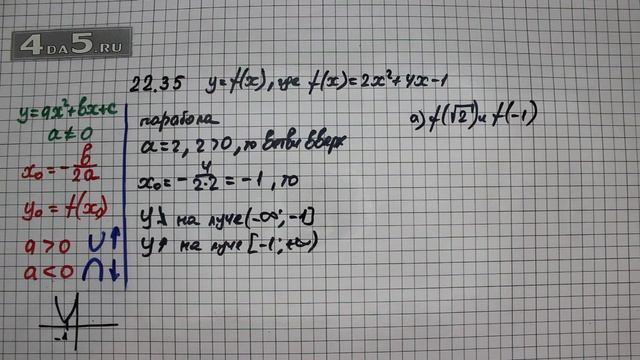 4DA5.RU
22.35 y=f(x), где f(x)=2x²+4x-1
y=ax²+bx+c
a≠0
x₀=-b/2a
y₀=f(x₀)
a>0 ∪↑
a<0 ∩↓
-1
парабола
a=2, 2>0, то ветви вверх
x₀=-4/2·2=-1, то
y↓ на луче (-∞;-1]
y↑ на луче [-1;+∞)
а) f(√2) и f(-1)